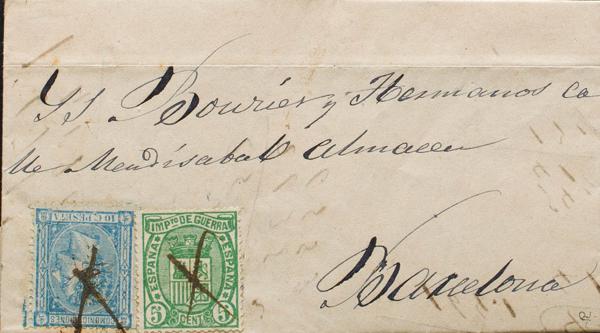 SS Bourier y Hermanos ca
lle Mendisabal almacen
Barcelona
10 C. PESETA
COMUNICACIONES
IMPTO DE GUERRA
ESPAÑA
ESPAÑA
5 CENT. 5